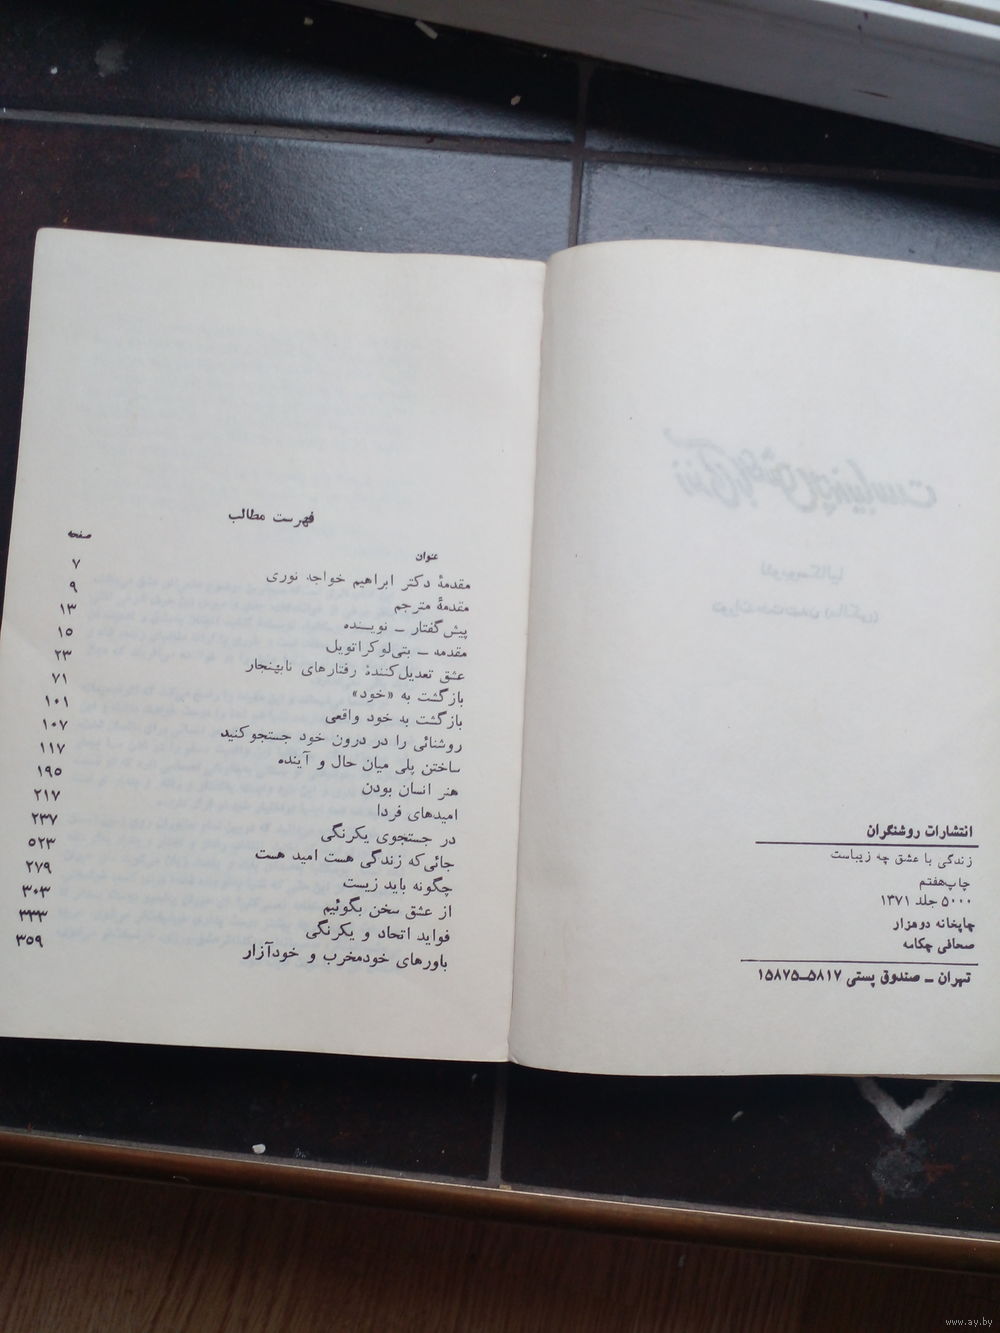 انتشارات روشنگران
زندگی با عشق چه زیباست
چاپ‌هفتم
۵۰۰۰ جلد ۱۳۷۱
چاپخانه دوهزار
صحافی چکامه
تهران ـ صندوق پستی ۵۸۱۷ـ۱۵۸۷۵
فهرست مطالب
عنوان صفحه
مقدمهٔ دکتر ابراهیم خواجه نوری ۷
مقدمهٔ مترجم ۹
پیش‌گفتار ـ نویسنده ۱۳
مقدمه ـ بتی‌لو کراتویل ۱۵
عشق تعدیل‌کنندهٔ رفتارهای نابهنجار ۲۳
بازگشت به «خود» ۷۱
بازگشت به خود واقعی ۱۰۱
روشنائی را در درون خود جستجو کنید ۱۰۷
ساختن پلی میان حال و آینده ۱۱۷
هنر انسان بودن ۱۹۵
امیدهای فردا ۲۱۷
در جستجوی یکرنگی ۲۳۷
جائی‌که زندگی هست امید هست ۵۲۳
چگونه باید زیست ۲۷۹
از عشق سخن بگوئیم ۳۰۳
فواید اتحاد و یکرنگی ۳۳۳
باورهای خودمخرب و خودآزار ۳۵۹
www.ay.by